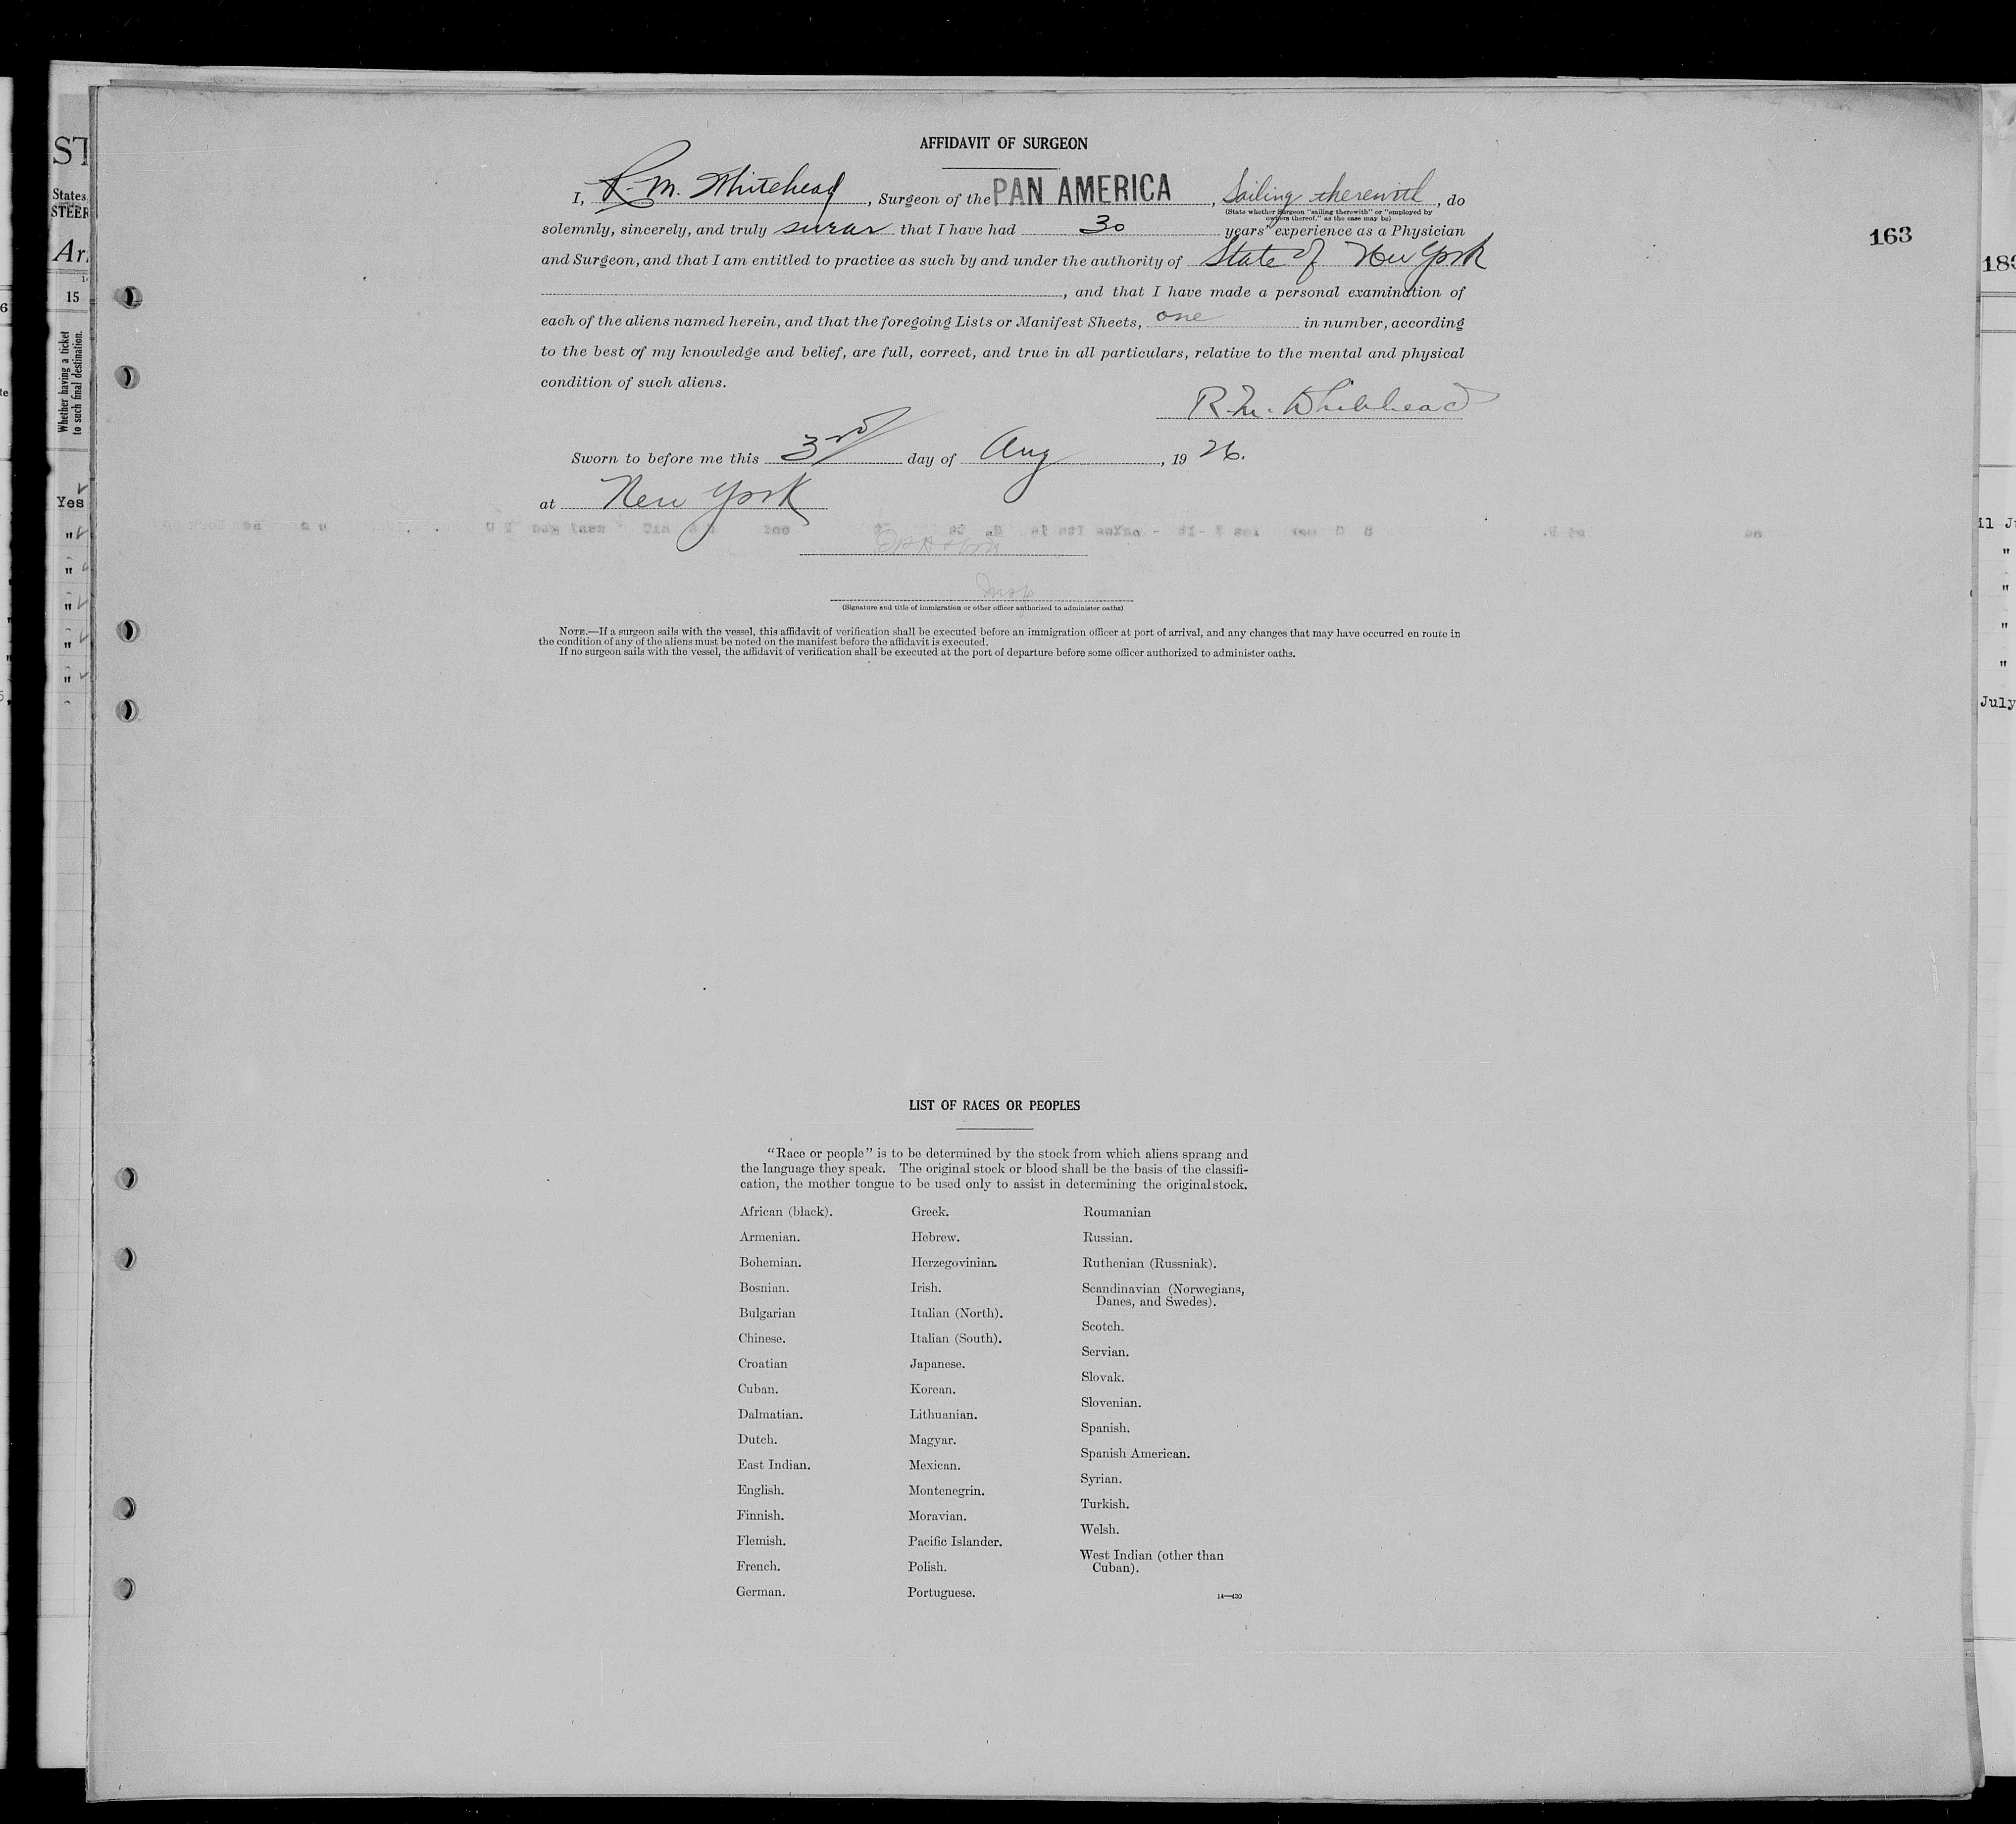 AFFIDAVIT OF SURGEON
I, R. M. Whitehead, Surgeon of the PAN AMERICA, Sailing therewith, do
(State whether Surgeon "sailing therewith" or "employed by
owners thereof," as the case may be)
solemnly, sincerely, and truly swear that I have had 30 years' experience as a Physician
163
and Surgeon, and that I am entitled to practice as such by and under the authority of State of New York
, and that I have made a personal examination of
each of the aliens named herein, and that the foregoing Lists or Manifest Sheets, one in number, according
to the best of my knowledge and belief, are full, correct, and true in all particulars, relative to the mental and physical
condition of such aliens.
R. M. Whitehead
Sworn to before me this 3rd day of Aug, 1926.
at New York
Insp
(Signature and title of immigration or other officer authorized to administer oaths)
NOTE.—If a surgeon sails with the vessel, this affidavit of verification shall be executed before an immigration officer at port of arrival, and any changes that may have occurred en route in
the condition of any of the aliens must be noted on the manifest before the affidavit is executed.
If no surgeon sails with the vessel, the affidavit of verification shall be executed at the port of departure before some officer authorized to administer oaths.
LIST OF RACES OR PEOPLES
"Race or people" is to be determined by the stock from which aliens sprang and
the language they speak. The original stock or blood shall be the basis of the classifi-
cation, the mother tongue to be used only to assist in determining the original stock.
African (black).
Armenian.
Bohemian.
Bosnian.
Bulgarian
Chinese.
Croatian
Cuban.
Dalmatian.
Dutch.
East Indian.
English.
Finnish.
Flemish.
French.
German.
Greek.
Hebrew.
Herzegovinian.
Irish.
Italian (North).
Italian (South).
Japanese.
Korean.
Lithuanian.
Magyar.
Mexican.
Montenegrin.
Moravian.
Pacific Islander.
Polish.
Portuguese.
Roumanian
Russian.
Ruthenian (Russniak).
Scandinavian (Norwegians,
Danes, and Swedes).
Scotch.
Servian.
Slovak.
Slovenian.
Spanish.
Spanish American.
Syrian.
Turkish.
Welsh.
West Indian (other than
Cuban).
14—430
States
15
Whether having a ticket
to such final destination.
Yes
July